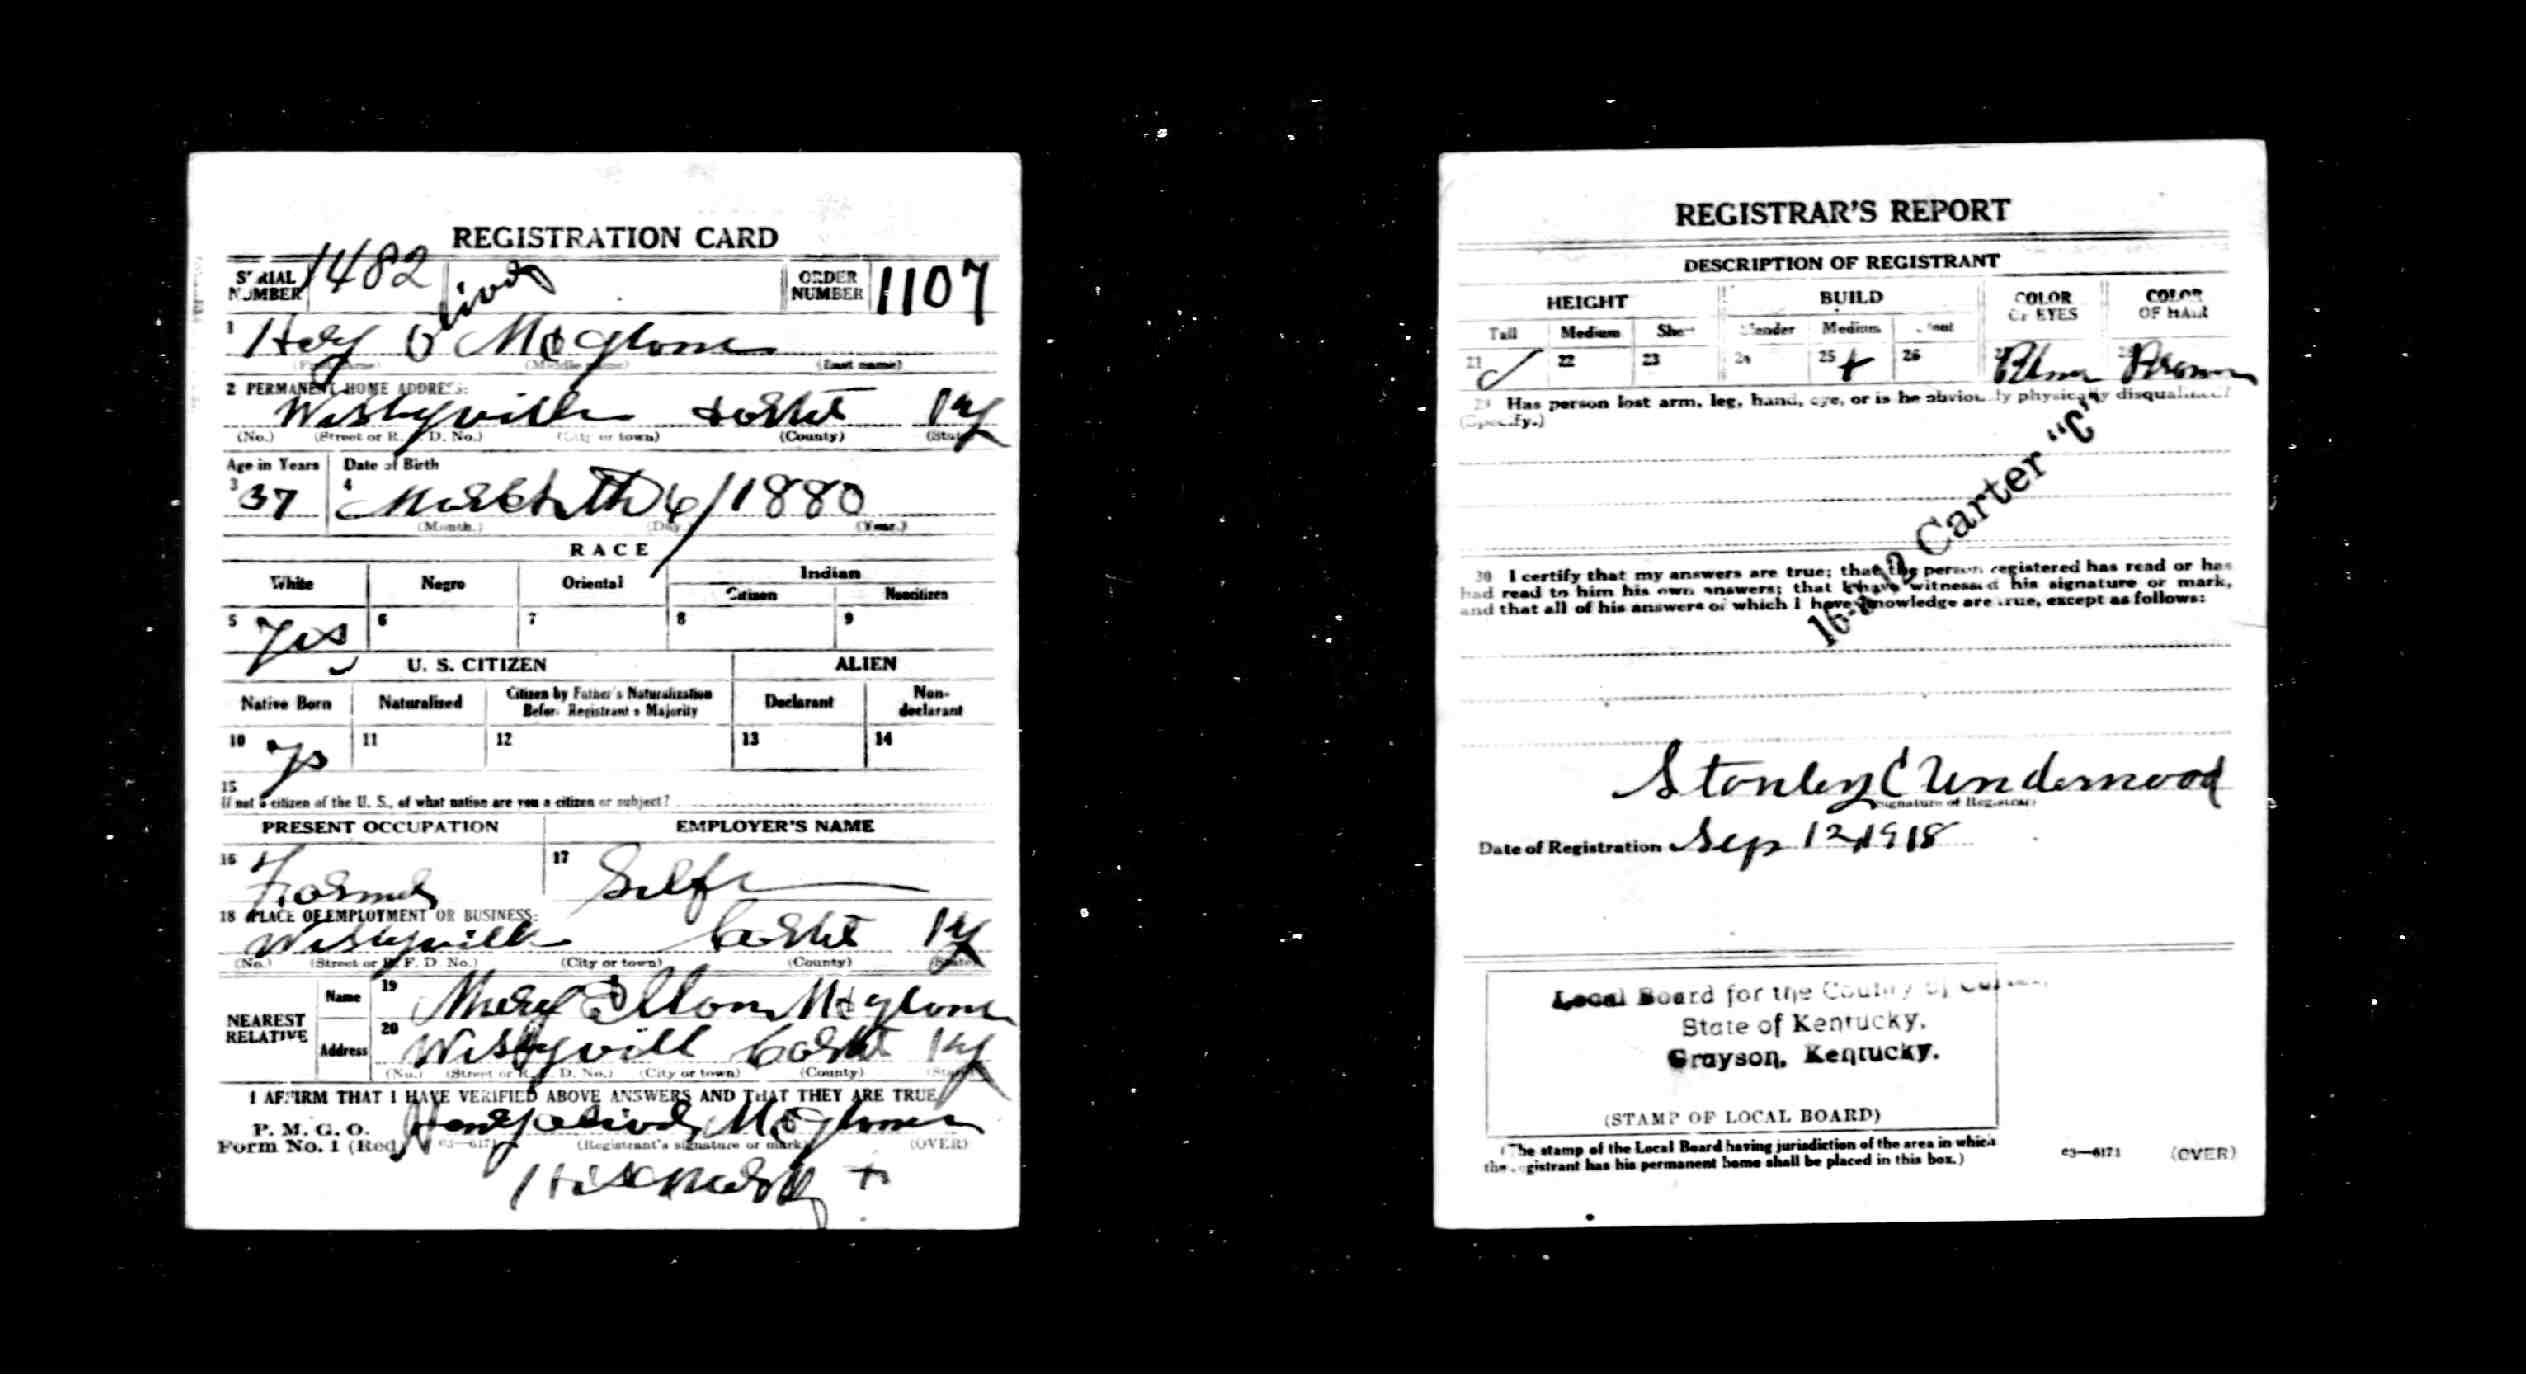 REGISTRATION CARD
SERIAL NUMBER 1482
ORDER NUMBER 1107
Oliver
1 Hey O McGlone
(First name) (Middle name) (Last name)
2 PERMANENT HOME ADDRESS:
Wesleyville Ky
(No.) (Street or R. F. D. No.) (City or town) (County) (State)
Age in Years Date of Birth
3 37 4 March 6/1880
(Month.) (Day.) (Year.)
RACE
White Negro Oriental Indian
Citizen Noncitizen
5 Yes 6 7 8 9
U. S. CITIZEN ALIEN
Native Born Naturalized Citizen by Father's Naturalization Before Registrant's Majority Declarant Non-declarant
10 Ys 11 12 13 14
15
If not a citizen of the U. S., of what nation are you a citizen or subject?
PRESENT OCCUPATION EMPLOYER'S NAME
16 Farmer 17 Self
18 PLACE OF EMPLOYMENT OR BUSINESS:
Wesleyville Carter Ky
(No.) (Street or R. F. D. No.) (City or town) (County) (State)
NEAREST RELATIVE
Name 19 Mary McGlone
Address 20 Wesleyvill Carter Ky
(No.) (Street or R. F. D. No.) (City or town) (County) (State)
I AFFIRM THAT I HAVE VERIFIED ABOVE ANSWERS AND THAT THEY ARE TRUE
P. M. G. O.
Form No. 1 (Red) 03—6171 (Registrant's signature or mark) (OVER)
Henry Oliver McGlone
His mark +
REGISTRAR'S REPORT
DESCRIPTION OF REGISTRANT
HEIGHT BUILD COLOR OF EYES COLOR OF HAIR
Tall Medium Short Slender Medium Stout
21 ✓ 22 23 24 25 + 26 27 Blue 28 Brown
29 Has person lost arm, leg, hand, eye, or is he obviously physically disqualified?
(Specify.)
16-2-12 Carter "C"
30 I certify that my answers are true; that the person registered has read or has
had read to him his own answers; that I have witnessed his signature or mark,
and that all of his answers of which I have knowledge are true, except as follows:
Stanley C Underwood
(Signature of Registrar)
Date of Registration Sep 12, 1918
Local Board for the County of Carter,
State of Kentucky,
Grayson, Kentucky.
(STAMP OF LOCAL BOARD)
(The stamp of the Local Board having jurisdiction of the area in which
the registrant has his permanent home shall be placed in this box.)
03—6171 (OVER)